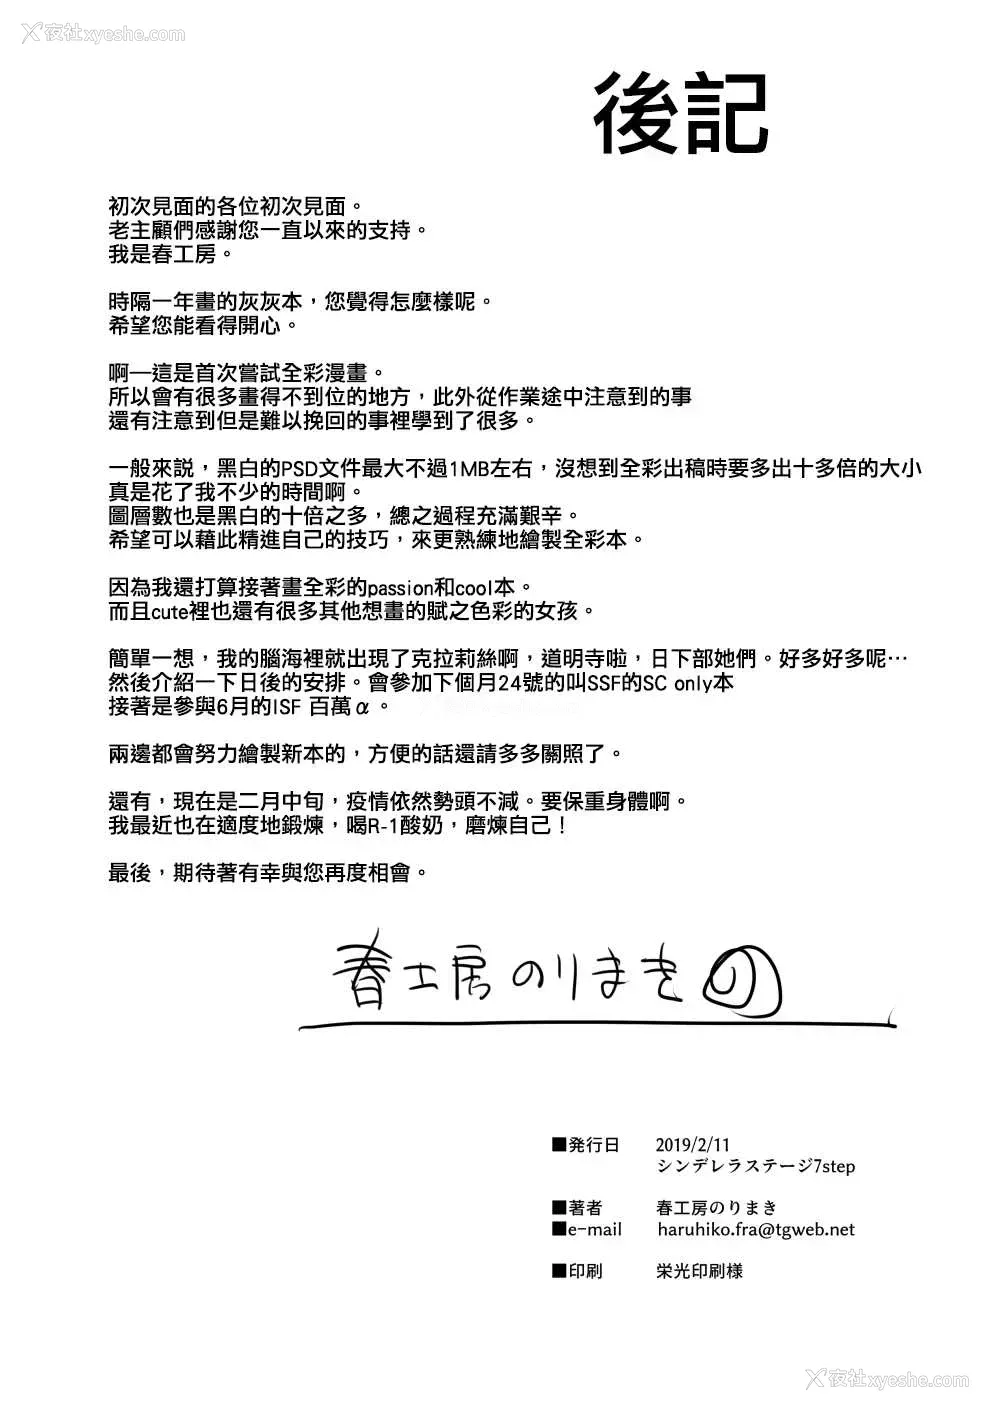 夜社xyeshe.com
後記
初次見面的各位初次見面。
老主顧們感謝您一直以來的支持。
我是春工房。
時隔一年畫的灰灰本，您覺得怎麼樣呢。
希望您能看得開心。
啊—這是首次嘗試全彩漫畫。
所以會有很多畫得不到位的地方，此外從作業途中注意到的事
還有注意到但是難以挽回的事裡學到了很多。
一般來説，黑白的PSD文件最大不過1MB左右，沒想到全彩出稿時要多出十多倍的大小
真是花了我不少的時間啊。
圖層數也是黑白的十倍之多，總之過程充滿艱辛。
希望可以藉此精進自己的技巧，來更熟練地繪製全彩本。
因為我還打算接著畫全彩的passion和cool本。
而且cute裡也還有很多其他想畫的賦之色彩的女孩。
簡單一想，我的腦海裡就出現了克拉莉絲啊，道明寺啦，日下部她們。好多好多呢…
然後介紹一下日後的安排。會參加下個月24號的叫SSF的SC only本
接著是參與6月的ISF 百萬α。
兩邊都會努力繪製新本的，方便的話還請多多關照了。
還有，現在是二月中旬，疫情依然勢頭不減。要保重身體啊。
我最近也在適度地鍛煉，喝R-1酸奶，磨煉自己！
最後，期待著有幸與您再度相會。
春工房のりまき の
■発行日 2019/2/11
シンデレラステージ7step
■著者 春工房のりまき
■e-mail haruhiko.fra@tgweb.net
■印刷 栄光印刷様
夜社xyeshe.com